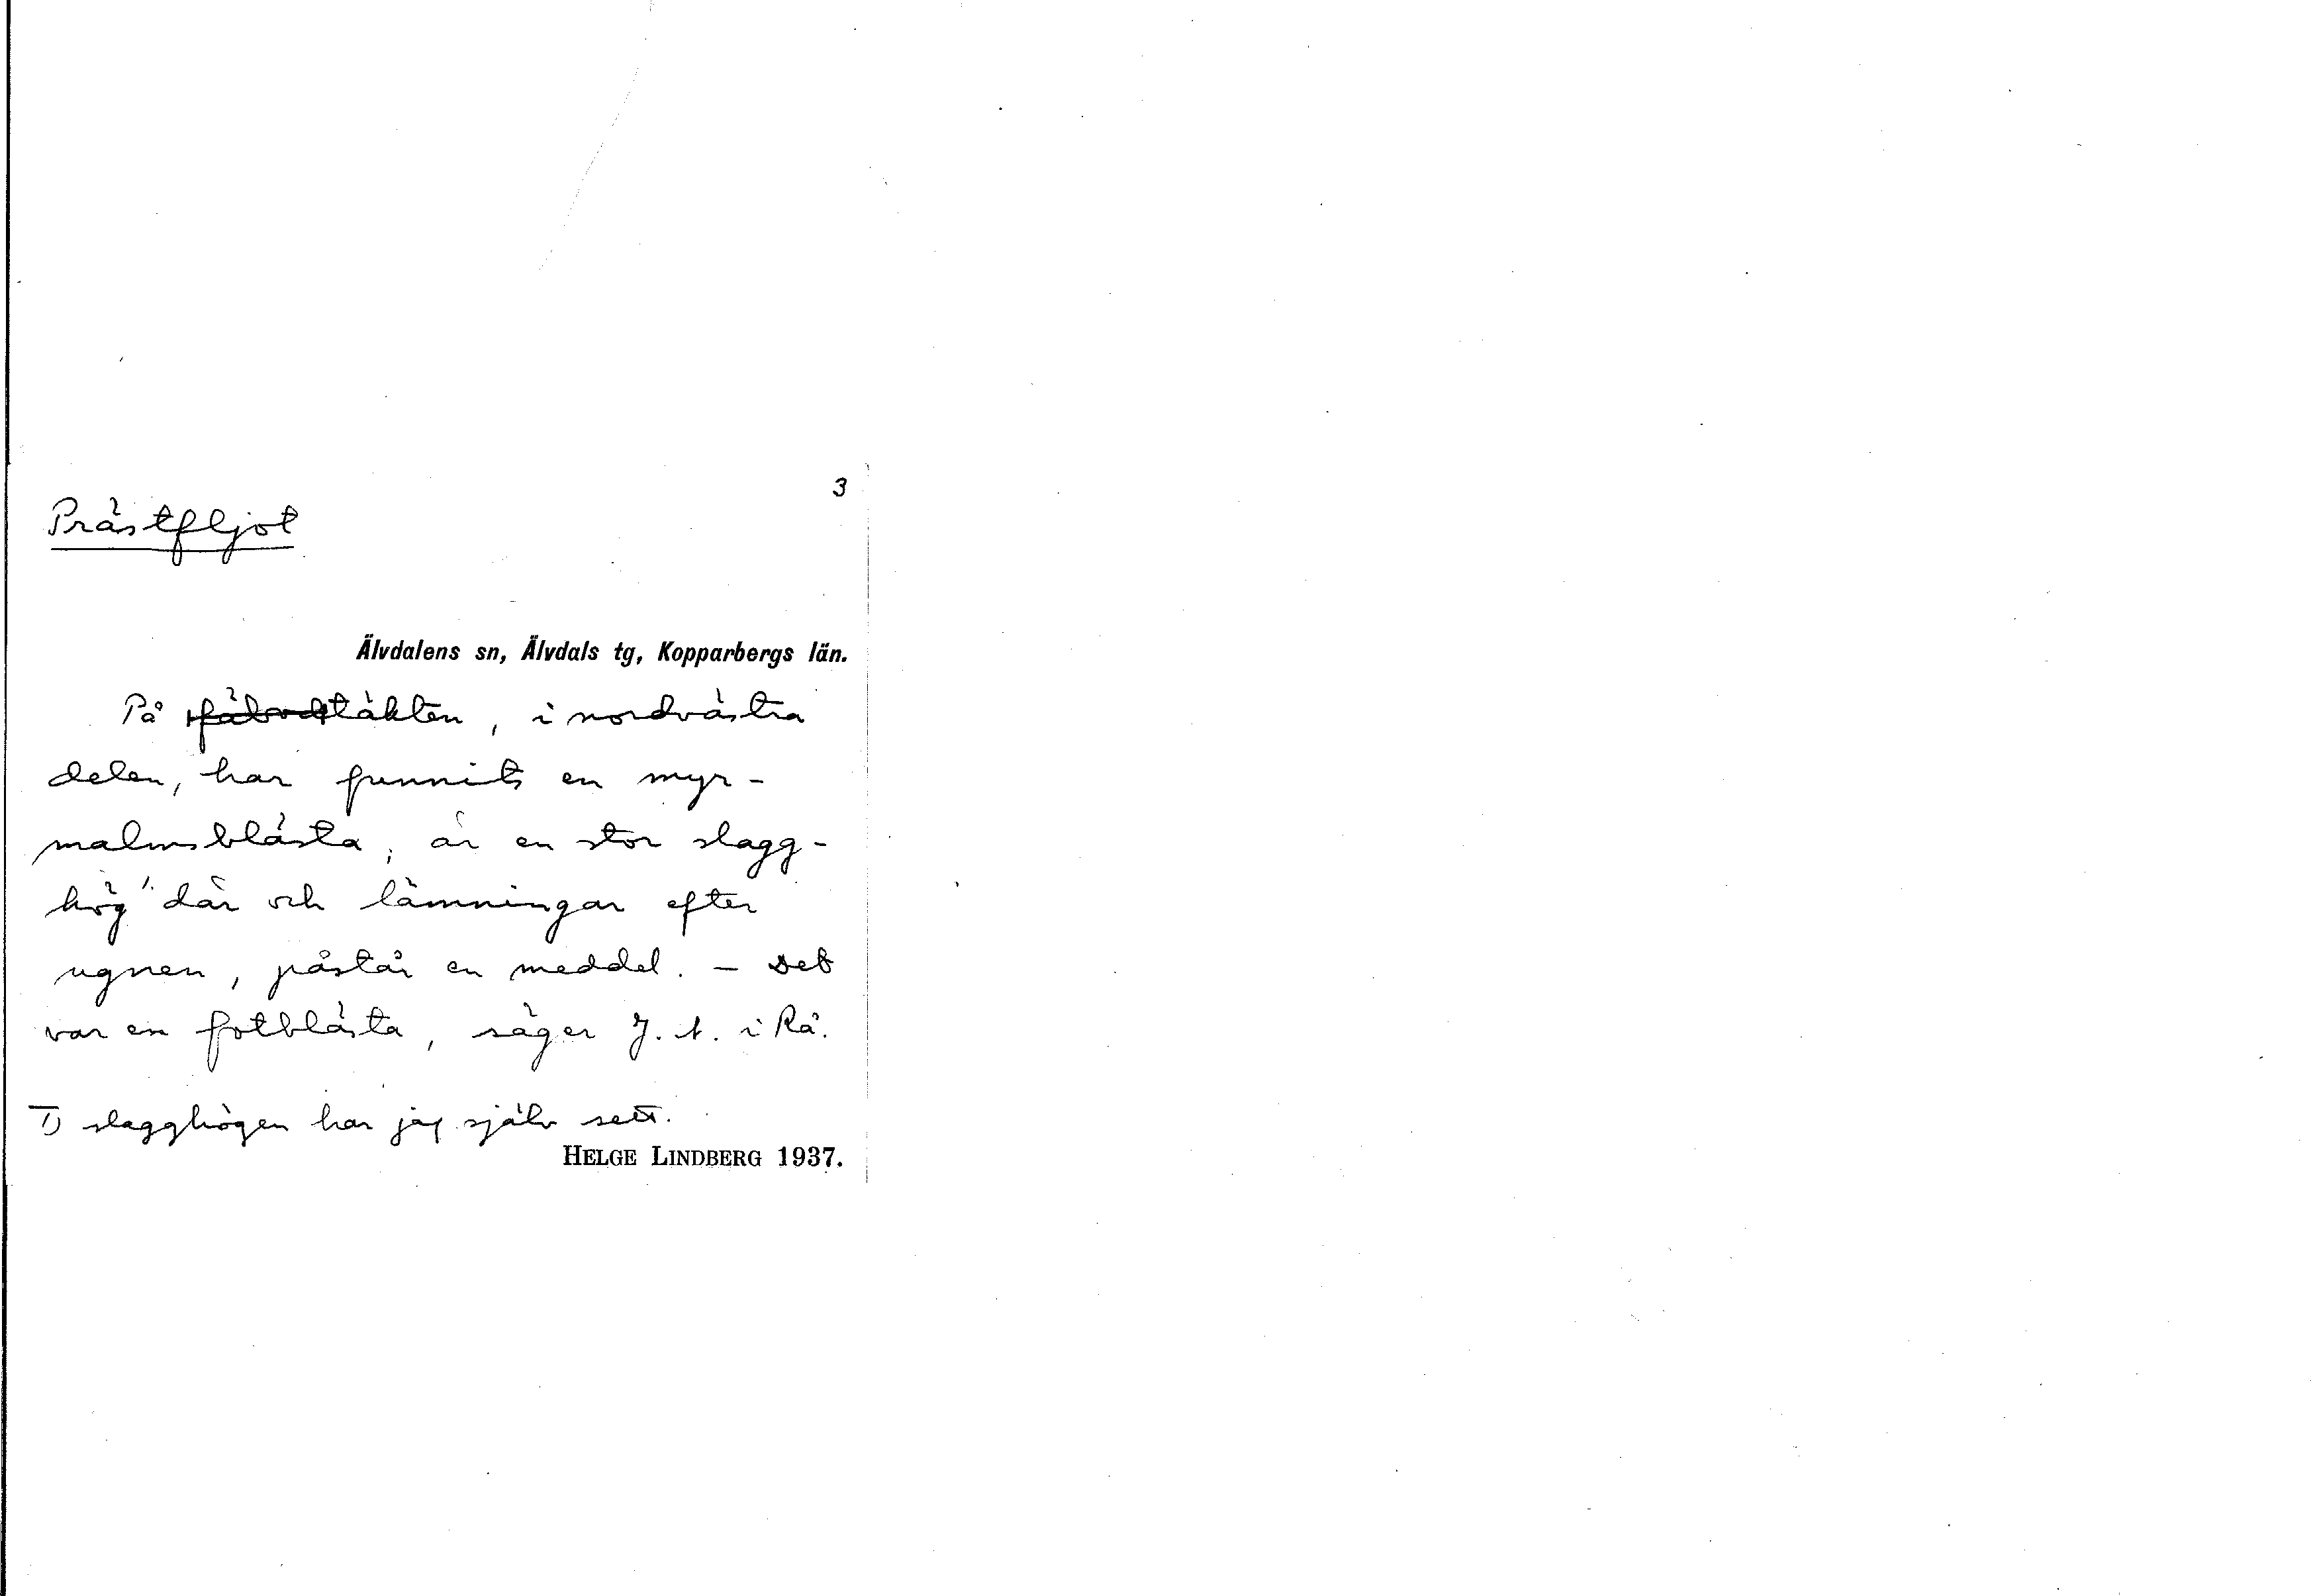 3
Prästfljot
Älvdalens sn, Älvdals tg, Kopparbergs län.
På fäbodtäkten, i nordvästra
delen, har funnits en myr-
malmsblästa; är en stor slagg-
hög 1) där och lämningar efter
ugnen, påstår en meddel. – Det
var en fotblästa, säger J. A. i Rå.
1) slagghögen har jag själv sett.
HELGE LINDBERG 1937.